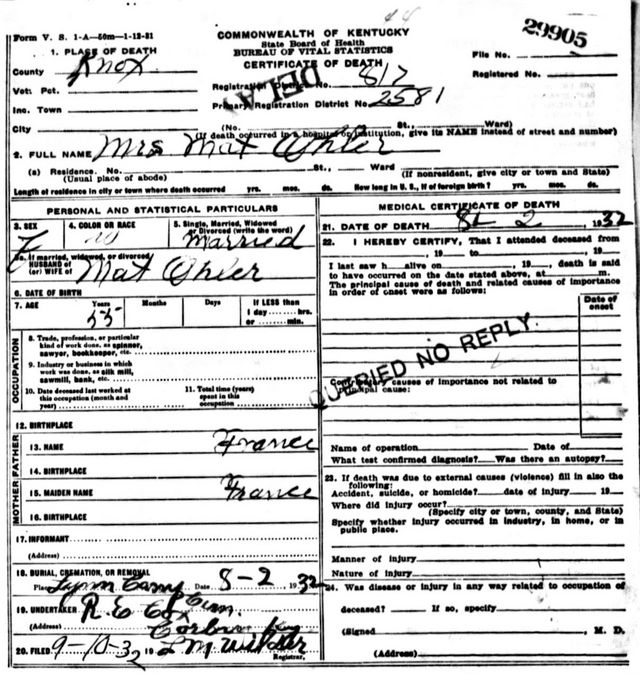 Form V. S. 1-A—50m—1-12-31
COMMONWEALTH OF KENTUCKY
State Board of Health
BUREAU OF VITAL STATISTICS
CERTIFICATE OF DEATH
29905
1. PLACE OF DEATH
County Knox
Vot. Pct.
Inc. Town
City
DELA
Registration District No. 817
Primary Registration District No. 2581
File No.
Registered No.
(No. St., Ward)
(If death occurred in a hospital or institution, give its NAME instead of street and number)
2. FULL NAME Mrs Mat Ohler
(a) Residence. No. St., Ward
(Usual place of abode) (If nonresident, give city or town and State)
Length of residence in city or town where death occurred yrs. mos. ds. How long in U. S., if of foreign birth? yrs. mos. ds.
PERSONAL AND STATISTICAL PARTICULARS
3. SEX
F
4. COLOR OR RACE
W
5. Single, Married, Widowed
or Divorced (write the word)
Married
5a. If married, widowed, or divorced
HUSBAND of
(or) WIFE of Mat Ohler
6. DATE OF BIRTH
7. AGE Years Months Days If LESS than
55 1 day hrs.
or min.
OCCUPATION
8. Trade, profession, or particular
kind of work done, as spinner,
sawyer, bookkeeper, etc.
9. Industry or business in which
work was done, as silk mill,
sawmill, bank, etc.
10. Date deceased last worked at
this occupation (month and
year)
11. Total time (years)
spent in this
occupation
12. BIRTHPLACE
FATHER
13. NAME France
14. BIRTHPLACE
MOTHER
15. MAIDEN NAME France
16. BIRTHPLACE
17. INFORMANT
(Address)
18. BURIAL, CREMATION, OR REMOVAL
Place Lynn Camp Date 8-2 1932
19. UNDERTAKER R E
(Address) Corbin Ky
20. FILED 9-10-32 19 L M
Registrar.
MEDICAL CERTIFICATE OF DEATH
21. DATE OF DEATH 8 2, 1932
22. I HEREBY CERTIFY, That I attended deceased from
, 19 to , 19
I last saw h alive on , 19 , death is said
to have occurred on the date stated above, at m.
The principal cause of death and related causes of importance
in order of onset were as follows:
Date of
onset
QUERIED NO REPLY.
causes of importance not related to
principal cause:
Name of operation Date of
What test confirmed diagnosis? Was there an autopsy?
23. If death was due to external causes (violence) fill in also the
following:
Accident, suicide, or homicide? date of injury 19
Where did injury occur?
(Specify city or town, county, and State)
Specify whether injury occurred in industry, in home, or in
public place.
Manner of injury
Nature of injury
24. Was disease or injury in any way related to occupation of
deceased? If so, specify
(Signed , M. D.
(Address)